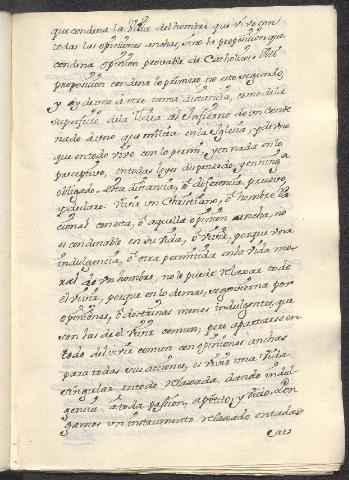 que condena la Vida del hombre que vive con
todas las opiniones anchas, no la proposicion que
condena opinion provable de Catholicos. Mi
proposicion condena lo primero no esto segundo,
y ay de uno a otro tanta distancia, como de la
superficie de la tierra al Infierno de un Conde
nado a uno que milita en la Iglesia, y de uno
que en todo vive con lo permi, y en nada en lo
preceptivo, en todas leyes dispensado, y en ning a
obligado. Esta distancia, o diferencia, preservo
Vivir un Christiano, o hombre Ra
cional con esta, o aquella opinion ancha, no
es condenable en su vida, o vivir, porque una
indulgencia, o otra permitida en la vida mo
ral de un hombre, no le puede relaxar todo
el vivir, porque en lo demas, se govierna por
opiniones, o doctrinas menos indulgentes, que
son las de el vivir comun; pero apartarse en
todo del vivir comun con opiniones anchas
para todas sus acciones, es vivir una vida
singular en todo relaxada, dando indul
gencia a toda passion, apetito, y vicio. Pon
gamos un instrumento relaxado en todas